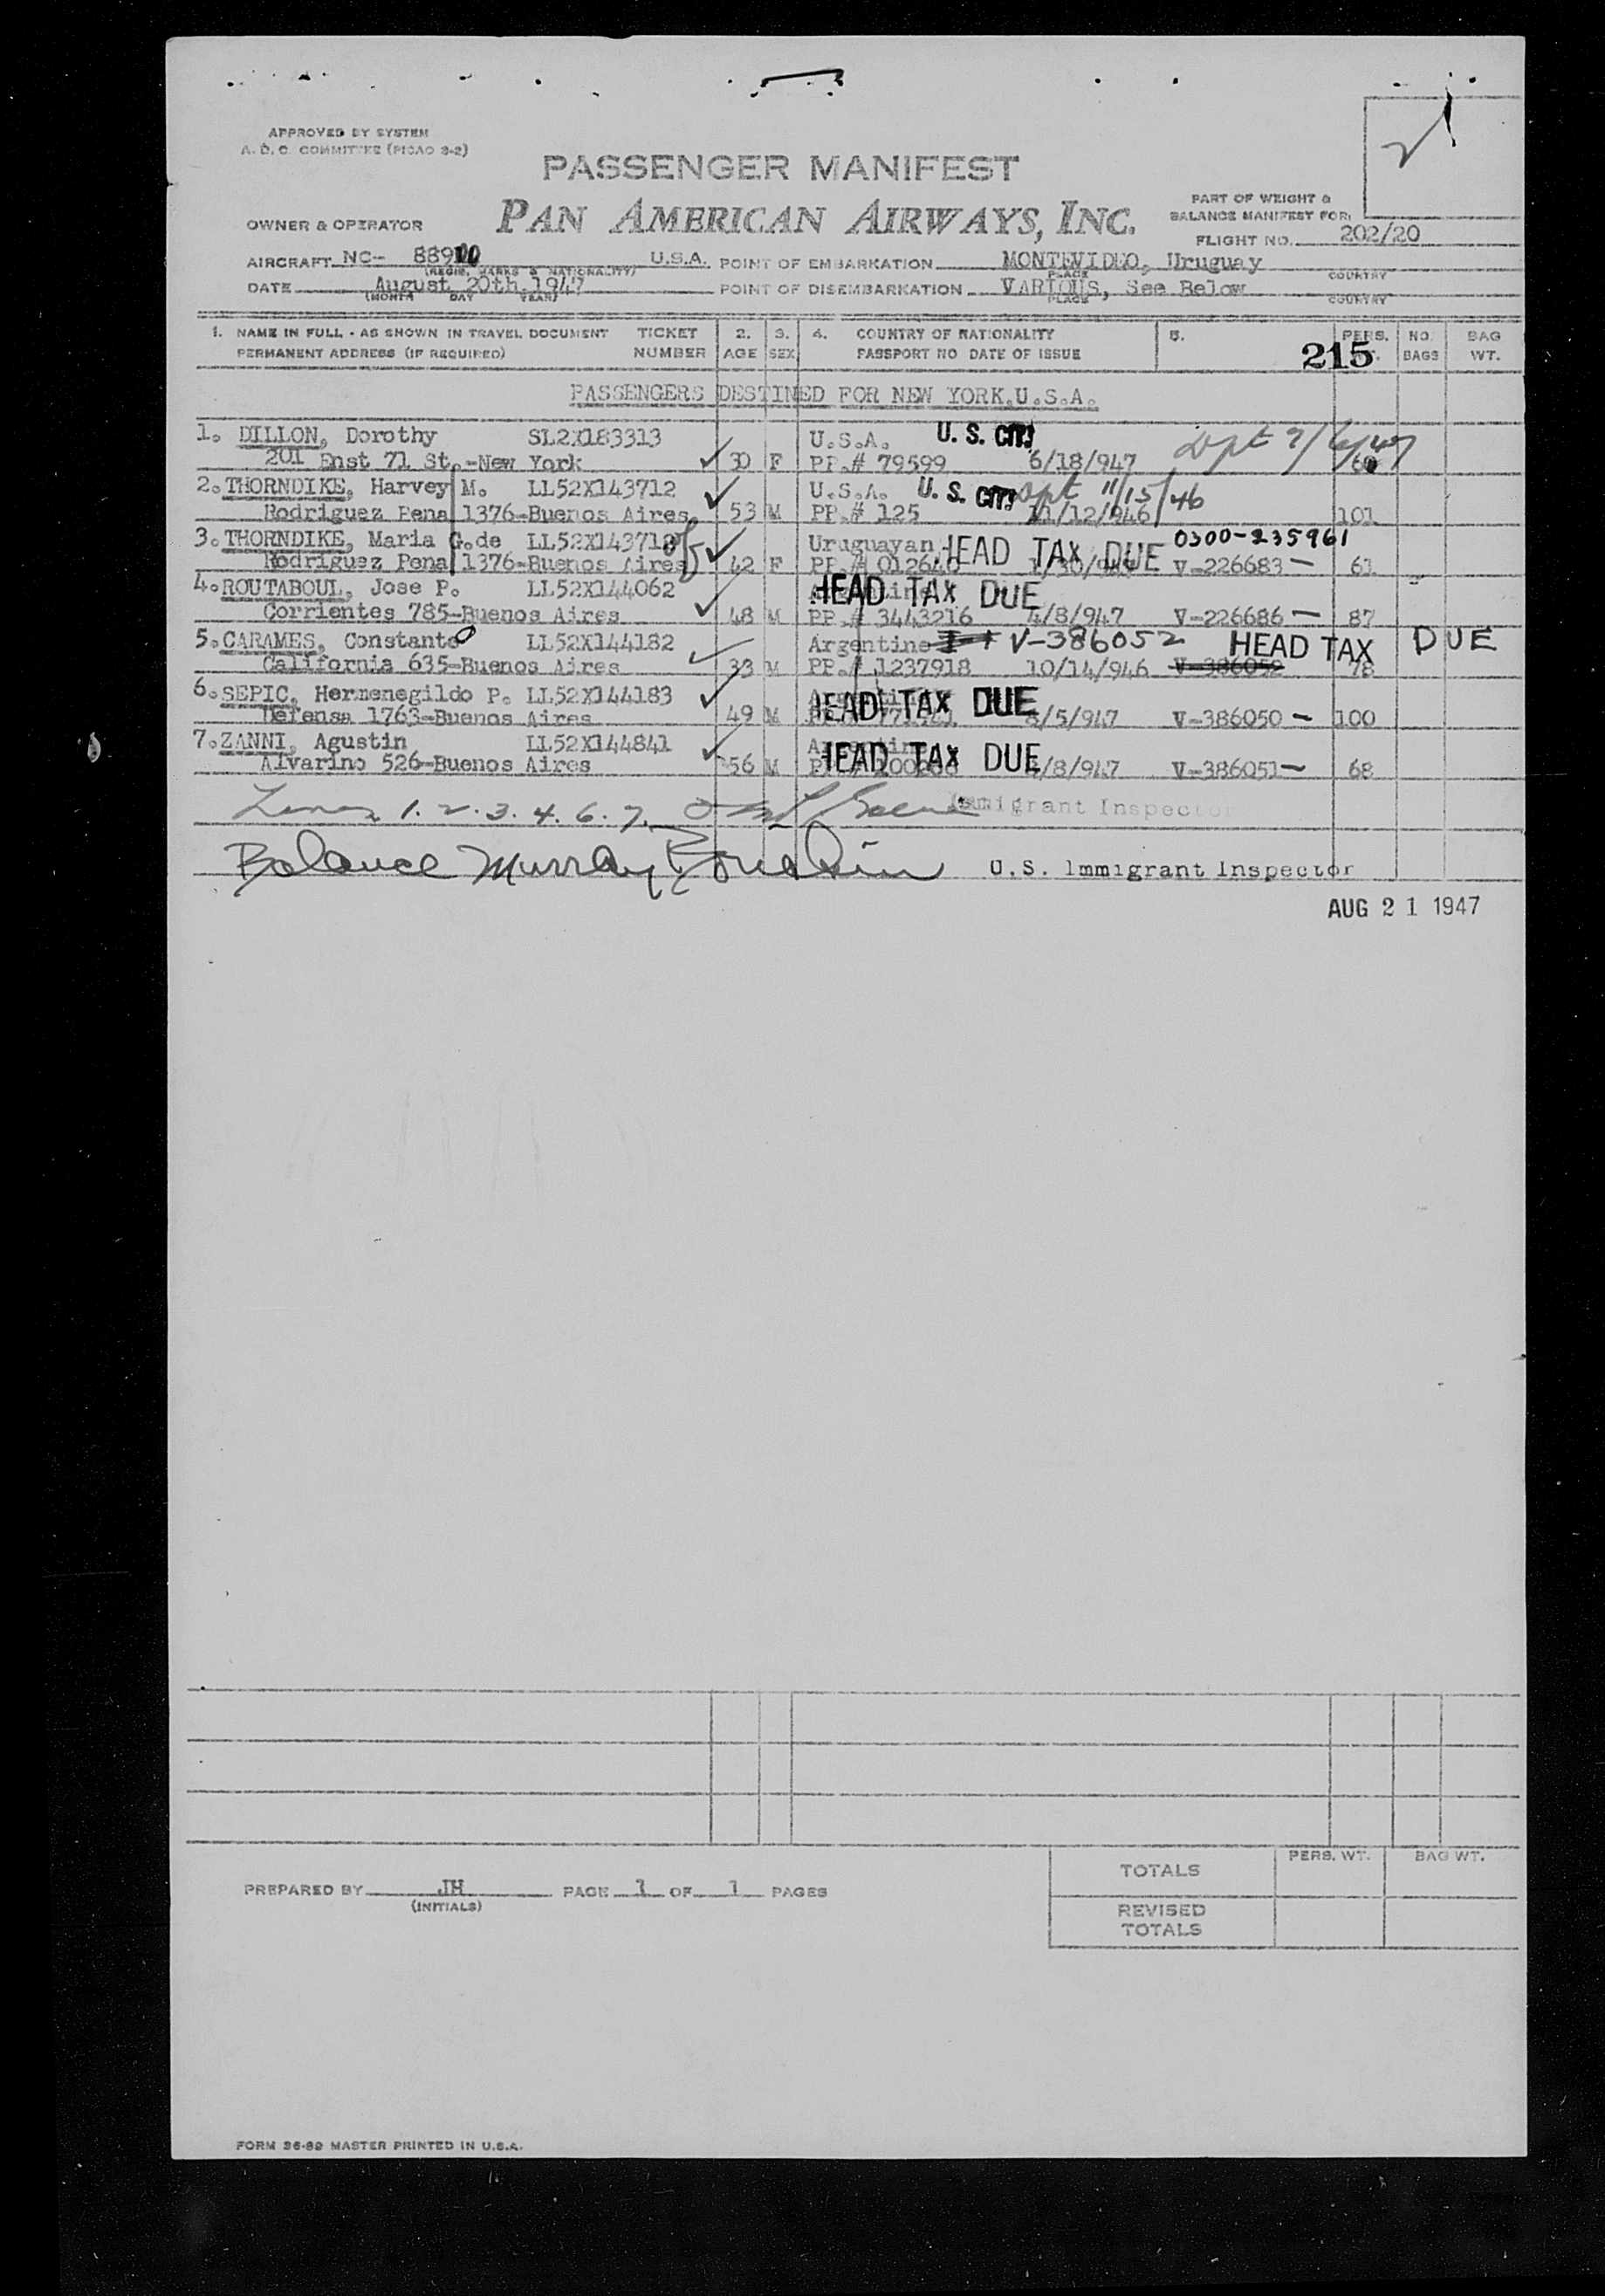 APPROVED BY SYSTEM
A. D. C. COMMITTEE (PICAO 3-2)
PASSENGER MANIFEST
PAN AMERICAN AIRWAYS, INC.
OWNER & OPERATOR
PART OF WEIGHT &
BALANCE MANIFEST FOR:
FLIGHT NO. 202/20
AIRCRAFT NC- 889 U.S.A. POINT OF EMBARKATION MONTEVIDEO, Uruguay
(REGIS. MARKS & NATIONALITY) PLACE COUNTRY
DATE August 20th.1947 POINT OF DISEMBARKATION VARIOUS, See Below
(MONTH DAY YEAR) PLACE COUNTRY
1. NAME IN FULL - AS SHOWN IN TRAVEL DOCUMENT TICKET 2. 3. 4. COUNTRY OF NATIONALITY 5. PERS. NO. BAG
PERMANENT ADDRESS (IF REQUIRED) NUMBER AGE SEX PASSPORT NO DATE OF ISSUE 215 BAGS WT.
PASSENGERS DESTINED FOR NEW YORK.U.S.A.
1. DILLON, Dorothy SL2X183313 U.S.A. U. S. CIT
201 East 71 St.-New York 30 F PP.# 79599 6/18/947
2.THORNDIKE, Harvey M. LL52X143712 U.S.A. U. S. CIT 11/15/46
Rodriguez Pena 1376-Buenos Aires. 53 M PP.# 125 11/12/946 101
3.THORNDIKE, Maria G.de Uruguayan HEAD TAX DUE 0300-235961
Rodriguez Pena 1376-Buenos Aires 42 F PP.# V-226683 - 61
4.ROUTABOUL, Jose P. LL52X144062 HEAD TAX DUE
Corrientes 785-Buenos Aires 48 M PP.# 3443216 4/8/947 V-226686 - 87
5.CARAMES, Constanto LL52X144182 Argentine V-386052 HEAD TAX DUE
California 635-Buenos Aires 33 M PP.# 1237918 10/14/946 V-386052 78
6.SEPIC, Hermenegildo P. LL52X144183 HEAD TAX DUE
Defensa 1763-Buenos Aires 49 M 8/5/947 V-386050 - 100
7.ZANNI, Agustin LL52X144841 HEAD TAX DUE
Alvarino 526-Buenos Aires 56 M /8/947 V-386051 - 68
Lines 1. 2. 3. 4. 6. 7. Immigrant Inspector
Balance Murray U.S. Immigrant Inspector
AUG 21 1947
TOTALS PERS. WT. BAG WT.
PREPARED BY JH PAGE 1 OF 1 PAGES
(INITIALS)
REVISED
TOTALS
FORM 36-82 MASTER PRINTED IN U.S.A.